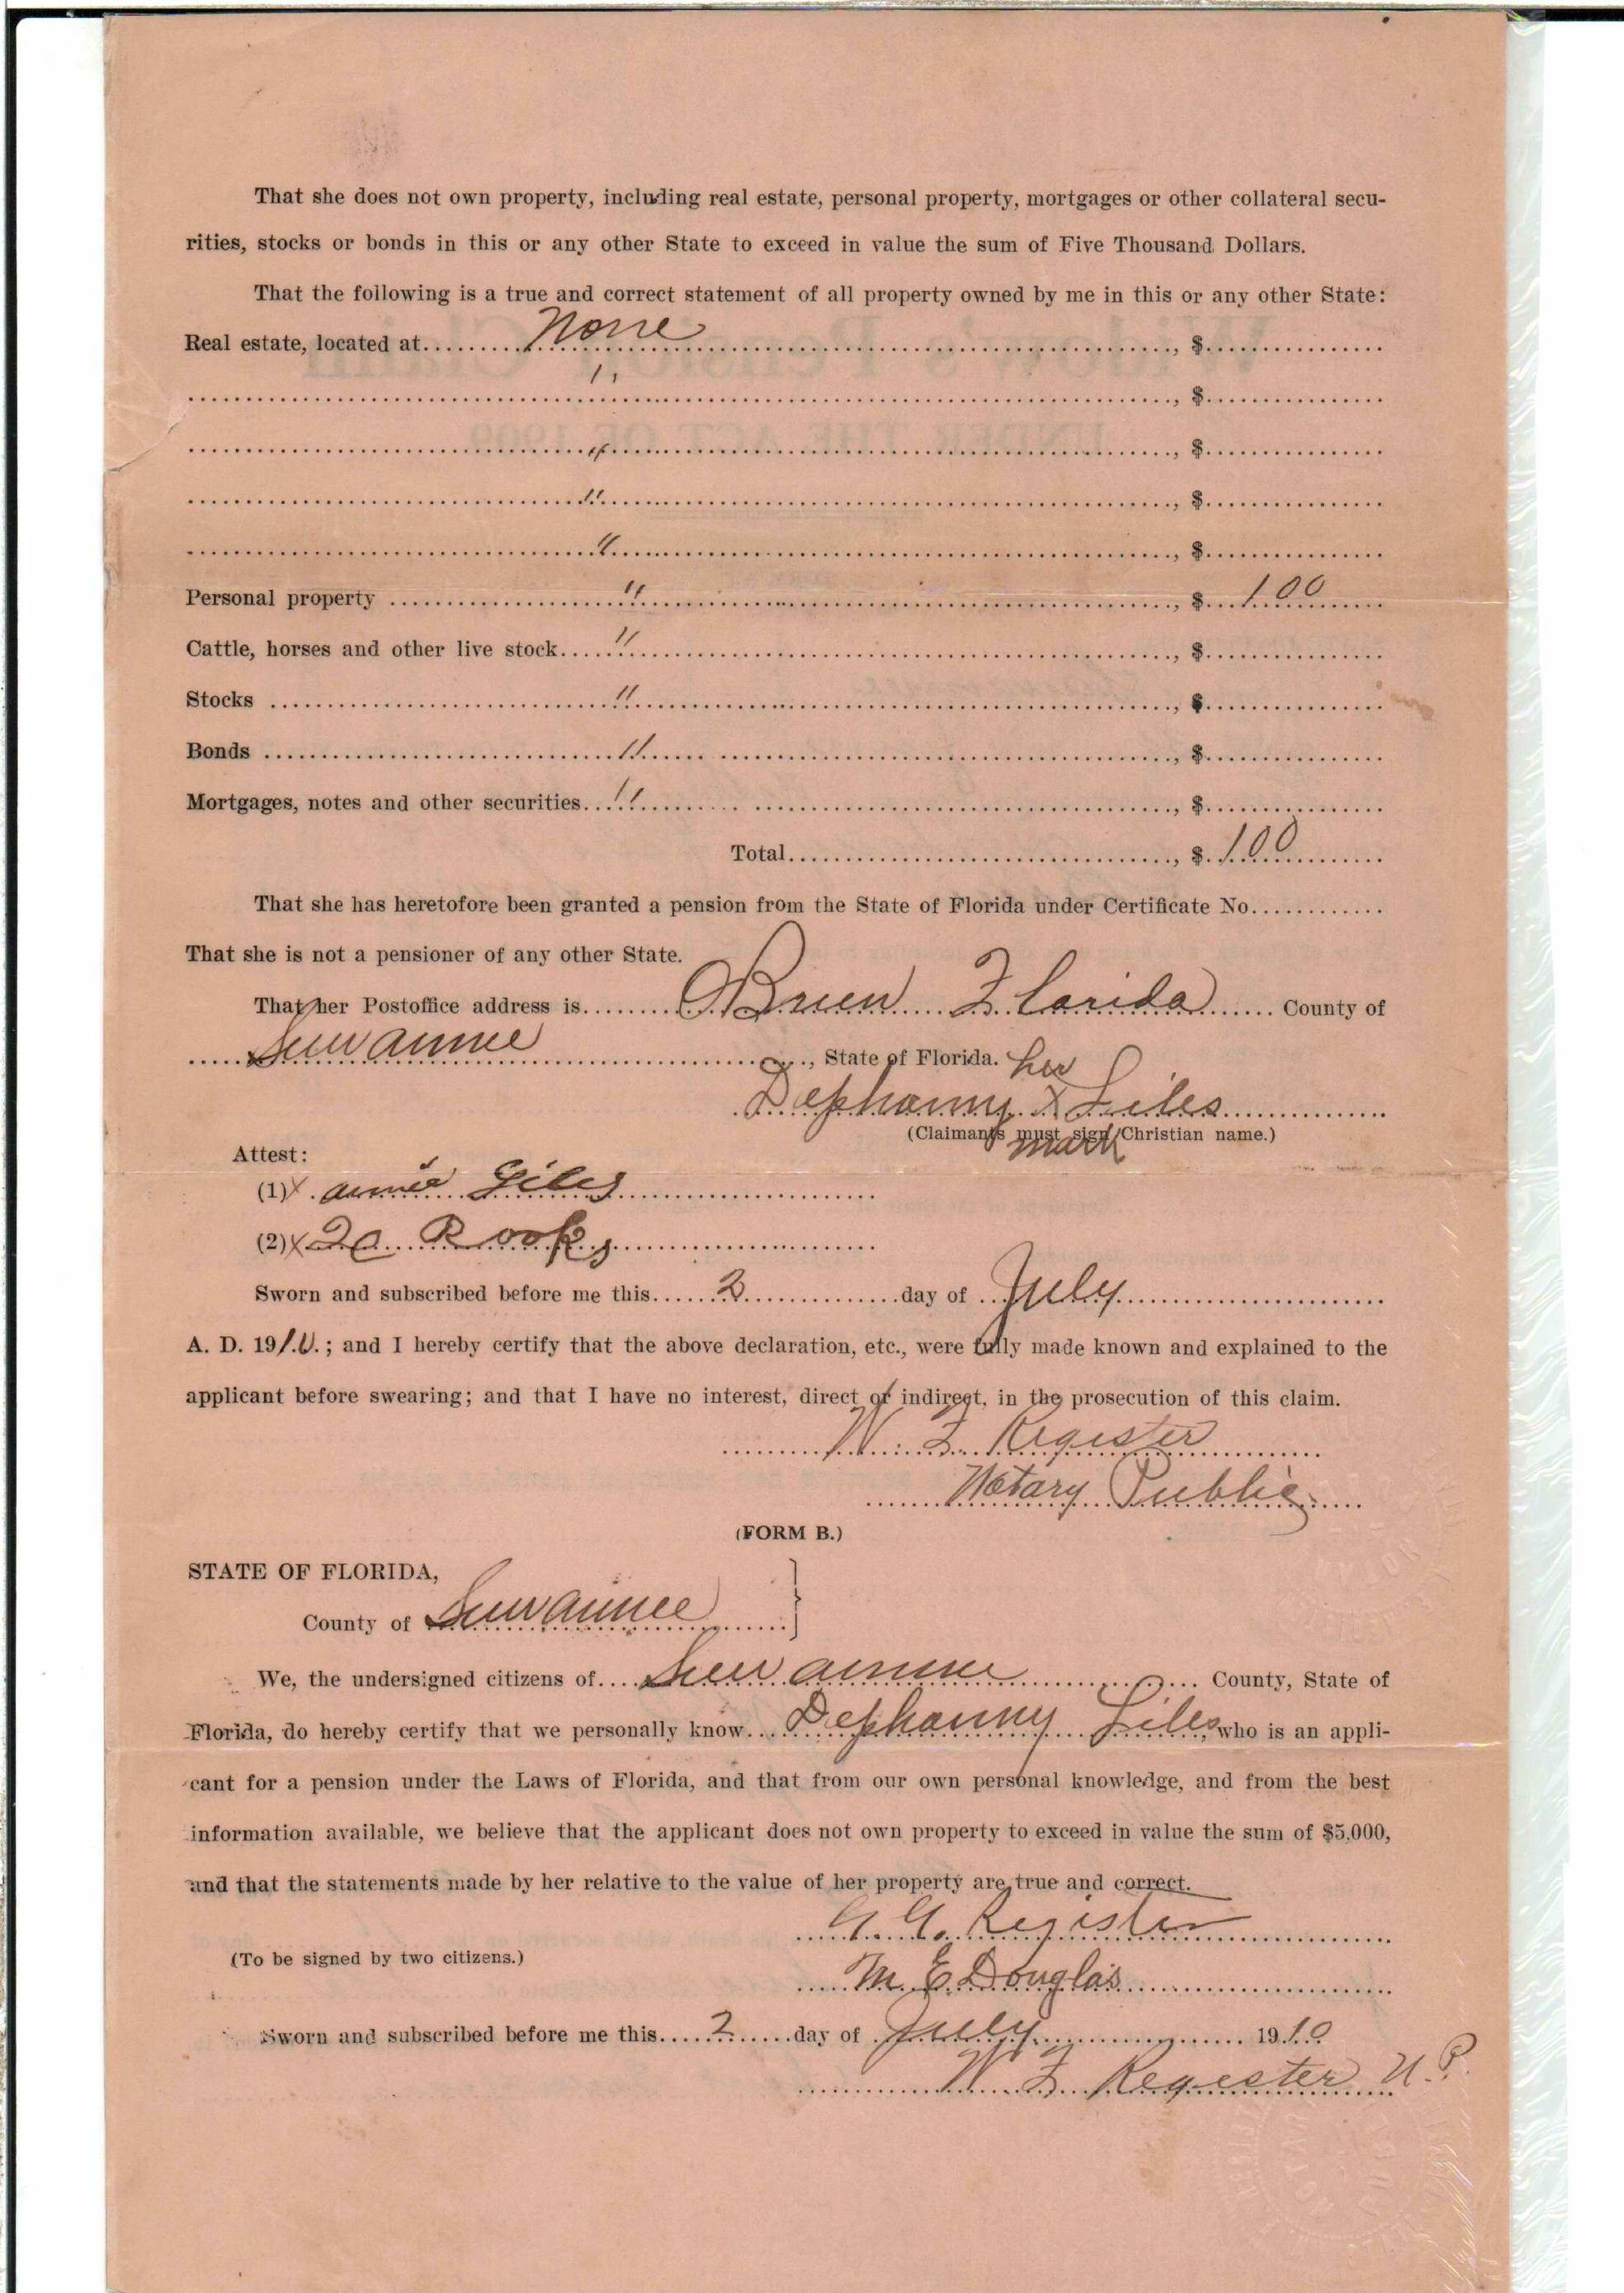 That she does not own property, including real estate, personal property, mortgages or other collateral secu-
rities, stocks or bonds in this or any other State to exceed in value the sum of Five Thousand Dollars.
That the following is a true and correct statement of all property owned by me in this or any other State:
Real estate, located at None , $
" , $
" , $
" , $
" , $
Personal property " , $ 100
Cattle, horses and other live stock " , $
Stocks " , $
Bonds " , $
Mortgages, notes and other securities " , $
Total , $ 100
That she has heretofore been granted a pension from the State of Florida under Certificate No.
That she is not a pensioner of any other State.
That her Postoffice address is OBrien Florida County of
Suwannee , State of Florida. her
Dephanny X Liles
(Claimants must sign Christian name.)
mark
Attest:
(1) X Annie Giles
(2) X Rooks
Sworn and subscribed before me this 2 day of July
A. D. 1910; and I hereby certify that the above declaration, etc., were fully made known and explained to the
applicant before swearing; and that I have no interest, direct or indirect, in the prosecution of this claim.
W. F. Register
Notary Public
(FORM B.)
STATE OF FLORIDA,
County of Suwannee }
We, the undersigned citizens of Suwannee County, State of
Florida, do hereby certify that we personally know Dephanny Liles, who is an appli-
cant for a pension under the Laws of Florida, and that from our own personal knowledge, and from the best
information available, we believe that the applicant does not own property to exceed in value the sum of $5,000,
and that the statements made by her relative to the value of her property are true and correct.
G. G. Register
(To be signed by two citizens.)
M. E Douglas
Sworn and subscribed before me this 2 day of July 1910
W. F. Register N. P.